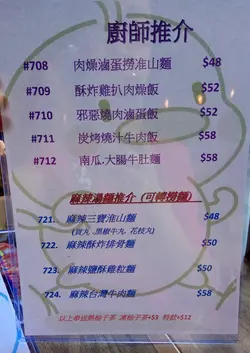 廚師推介
#708 肉燥滷蛋撈淮山麵 $48
#709 酥炸雞扒肉燥飯 $52
#710 邪惡燒肉滷蛋飯 $52
#711 炭烤燒汁牛肉飯 $58
#712 南瓜.大腸牛肚麵 $58
麻辣湯麵推介 (可轉撈麵)
721. 麻辣三寶淮山麵 $48
(貢丸 .黑椒牛丸 花枝丸)
722. 麻辣酥炸排骨麵 $50
723. 麻辣鹽酥雞粒麵 $50
724. 麻辣台灣牛肉麵 $58
以上奉送熱柚子茶 凍柚子茶+$3 特飲+$12